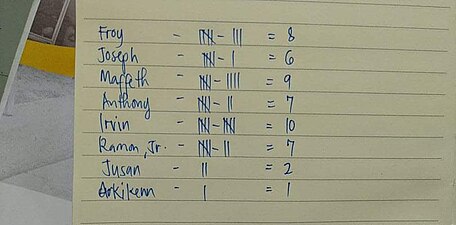 Froy - 卌 - ||| = 8
Joseph - 卌 - | = 6
Maffeth - 卌 - |||| = 9
Anthony - 卌 - || = 7
Irvin - 卌 - 卌 = 10
Ramon, Jr. - 卌 - || = 7
Jusan - || = 2
Arkikenn - | = 1